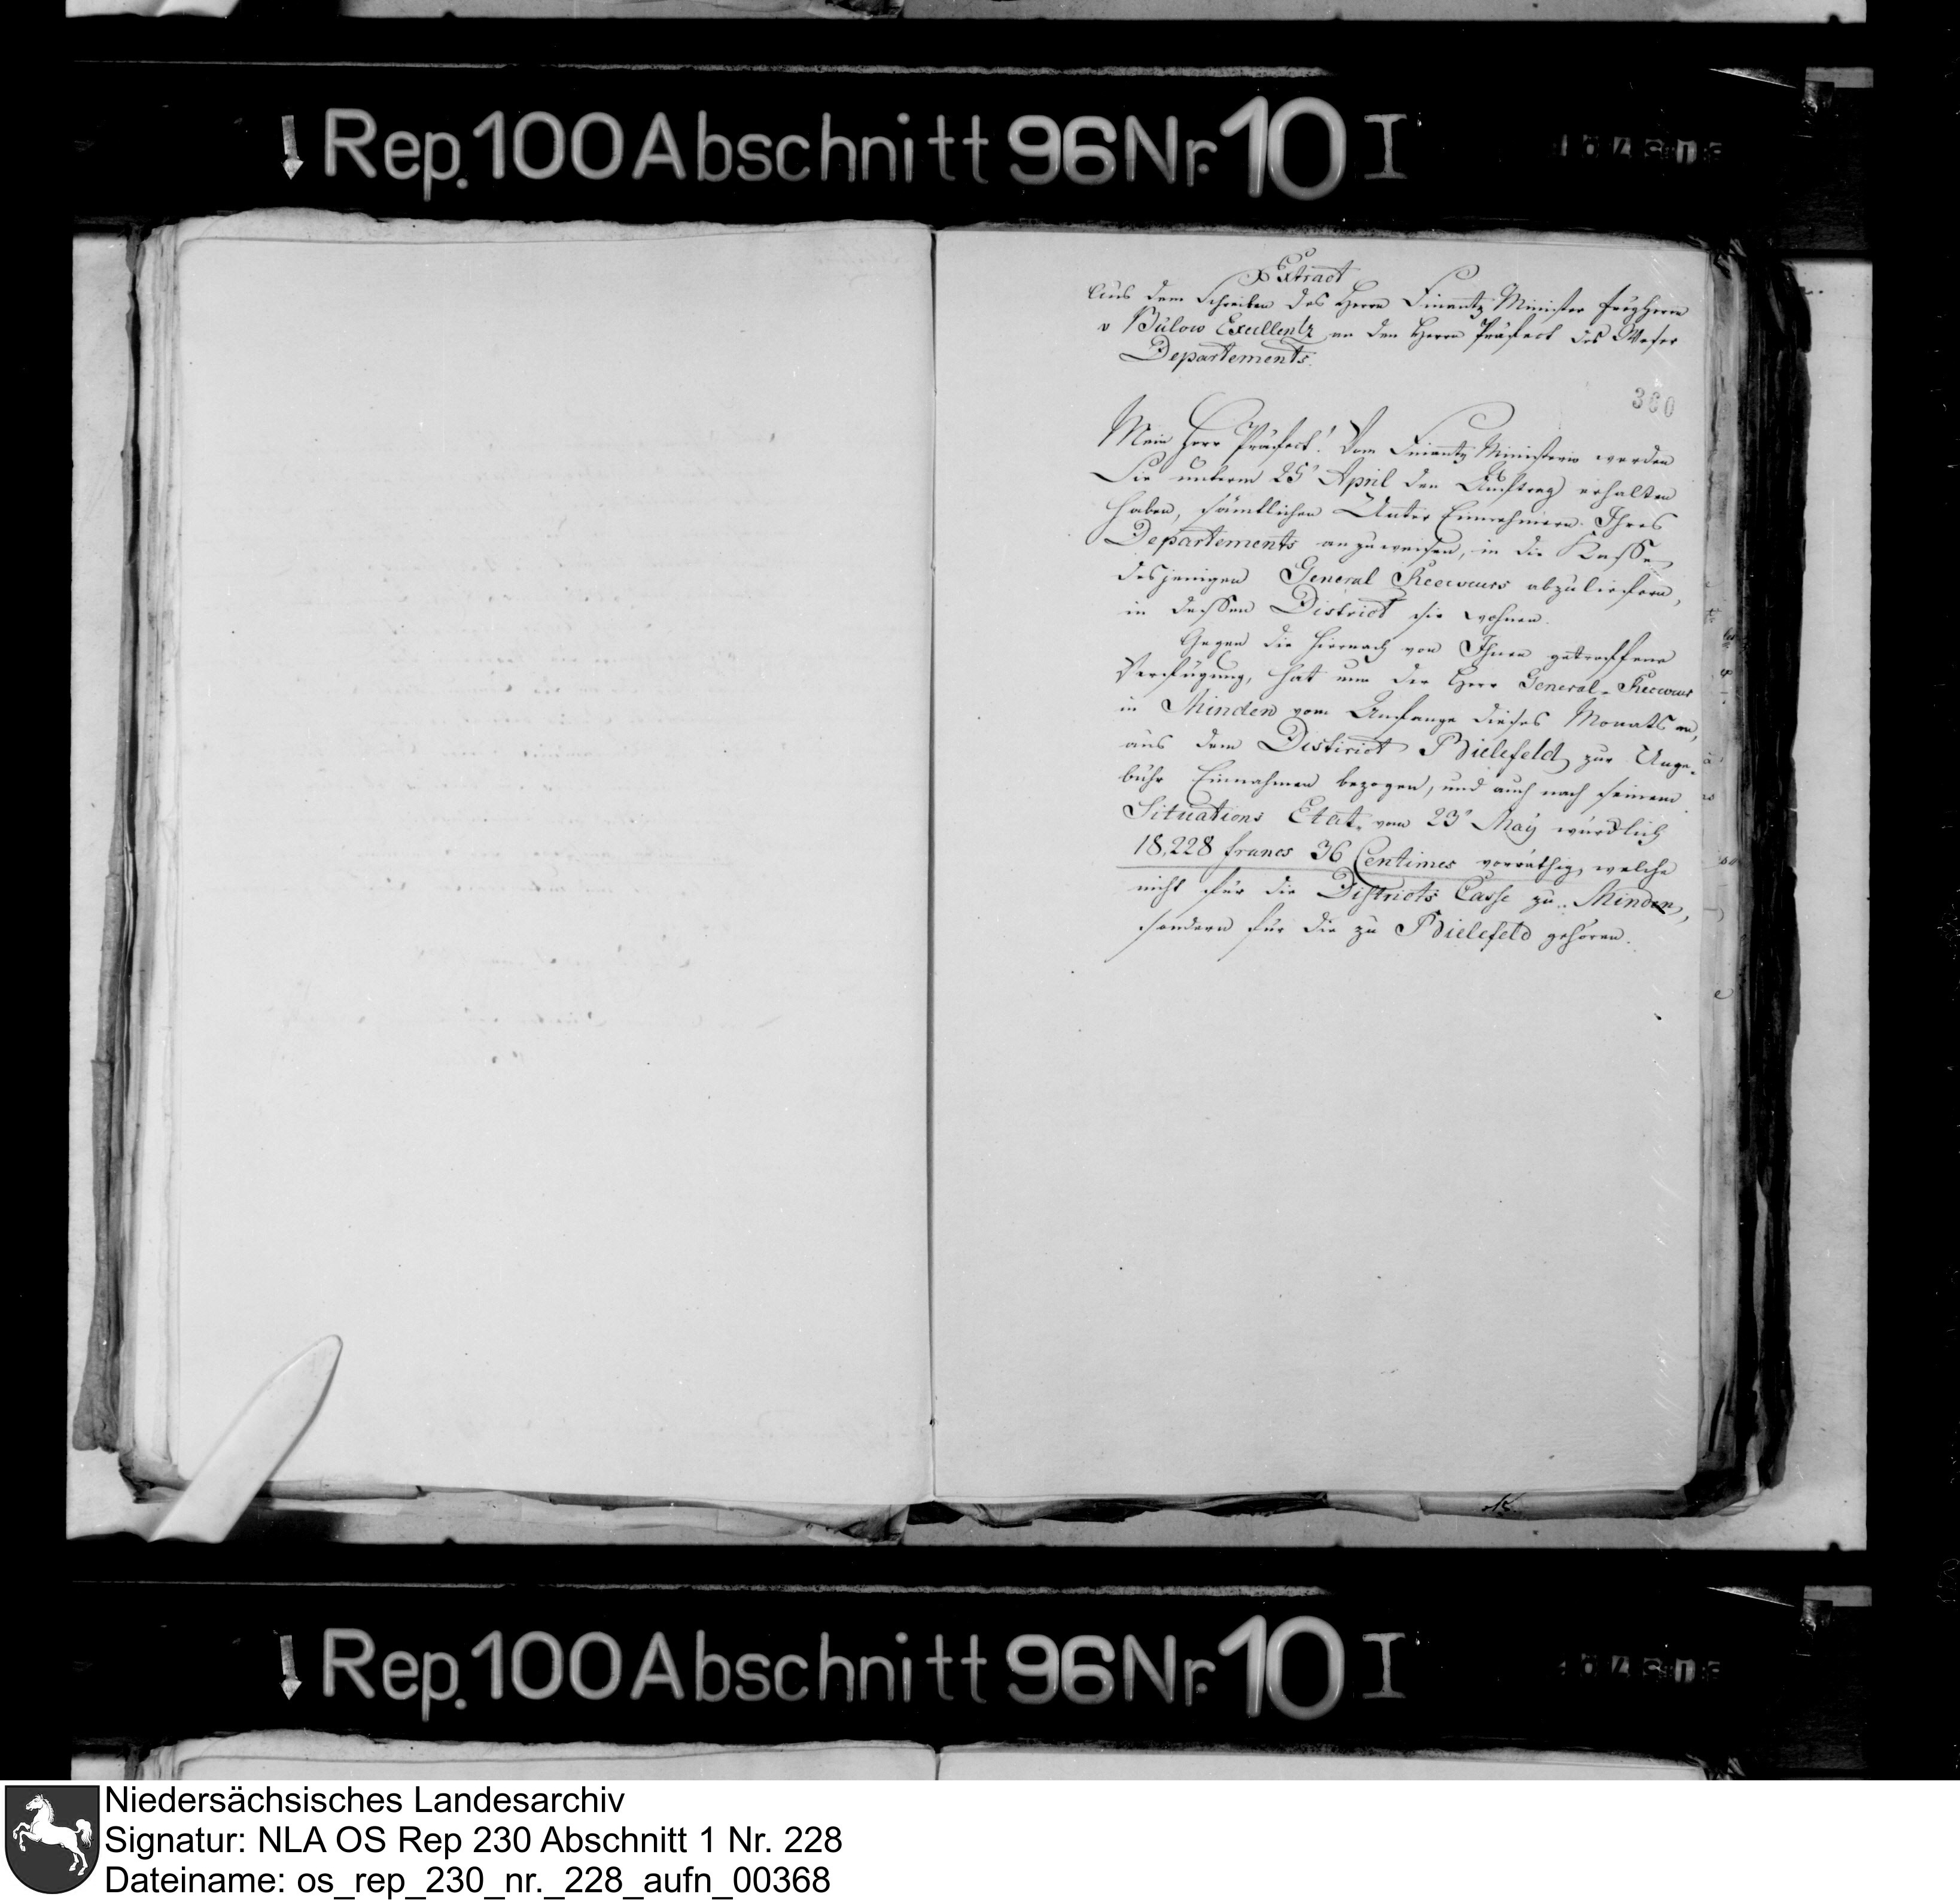 Rep. 100 Abschnitt 96 Nr. 10 I
Extract
Aus dem Schreiben des Herrn Finantz Minister Freyherrn
v Bülow Excellentz an den Herrn Präfect des Weser
Departements.
360
Mein Herr Präfect! Vom Finantz Ministerio werden
Sie unterm 25t April den Auftrag erhalten
haben, sämtlichen Unter Einnehmern Ihres
Departements anzuweisen, in die Kasse
desjenigen General Receveurs abzuliefern,
in dessen District sie wohnen.
Gegen die hiernach von Ihnen getroffene
Verfügung, hat nun der Herr General-Receveur
in Minden vom Anfange dieses Monats an,
aus dem District Bielefeld zur Unge-
bühr Einnahmen bezogen, und auch nach seinem
Situations Etat vom 23t May würcklich
18,228 francs 36 Centimes vorräthig, welche
nicht für die Districts Casse zu Minden,
sondern für die zu Bielefeld gehören.
Rep. 100 Abschnitt 96 Nr. 10 I
Niedersächsisches Landesarchiv
Signatur: NLA OS Rep 230 Abschnitt 1 Nr. 228
Dateiname: os_rep_230_nr._228_aufn_00368